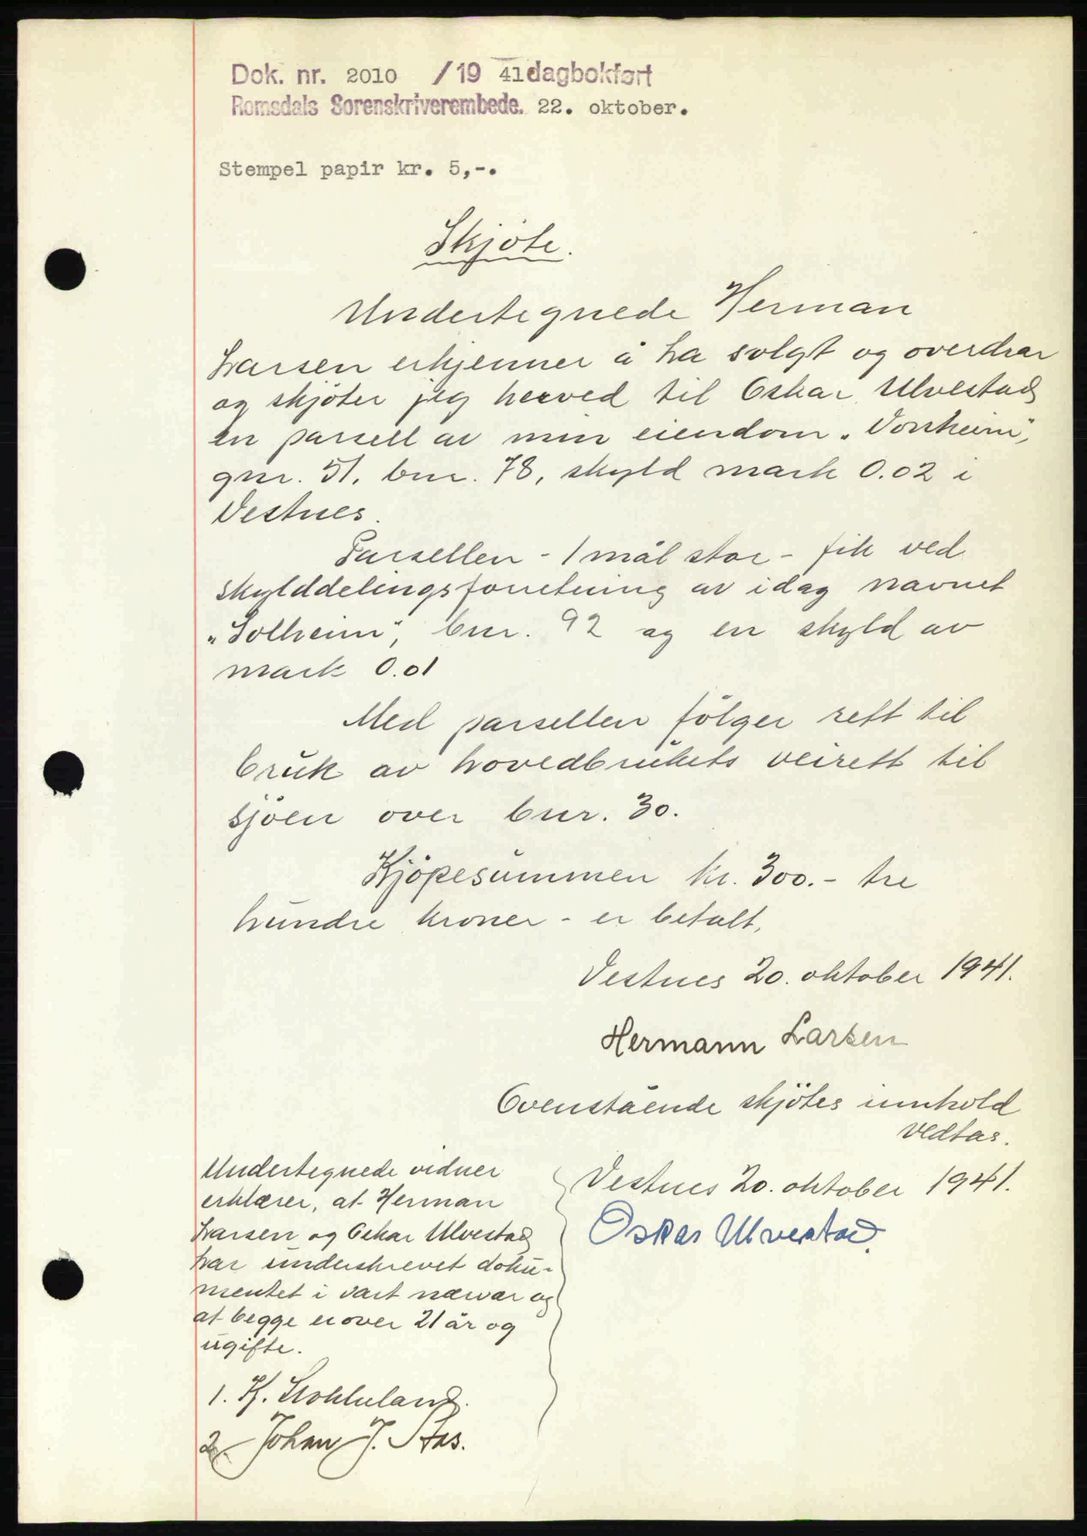 Dok. nr. 2010 /19 41 dagbokført
Romsdals Sorenskriverembede. 22. oktober.
Stempel papir kr. 5,-.
Skjöte.
Undertegnede Herman
Larsen erkjenner å ha solgt og overdrar
og skjöter jeg herved til Oskar Ulvestad
en parsell av min eiendom „Vonheim",
gnr. 51, bnr. 78, skyld mark 0.02 i
Vestnes.
Parsellen - 1 mål stor - fik ved
skylddelingsforretning av idag navnet
„Solheim", bnr. 92 og en skyld av
mark 0.01
Med parsellen fölger rett til
bruk av hovedbrukets veirett til
sjöen over bnr. 30.
Kjöpesummen kr. 300.- tre
hundre kroner - er betalt.
Vestnes 20. oktober 1941.
Hermann Larsen
Ovenstående skjötes innhold
vedtas.
Vestnes 20. oktober 1941.
Oskar Ulvestad.
Undertegnede vidner
erklærer, at Herman
Larsen og Oskar Ulvestad
har underskrevet doku-
mentet i vart nærvær og
at begge er over 21 år og
ugifte.
1. K.
2. Johan J.